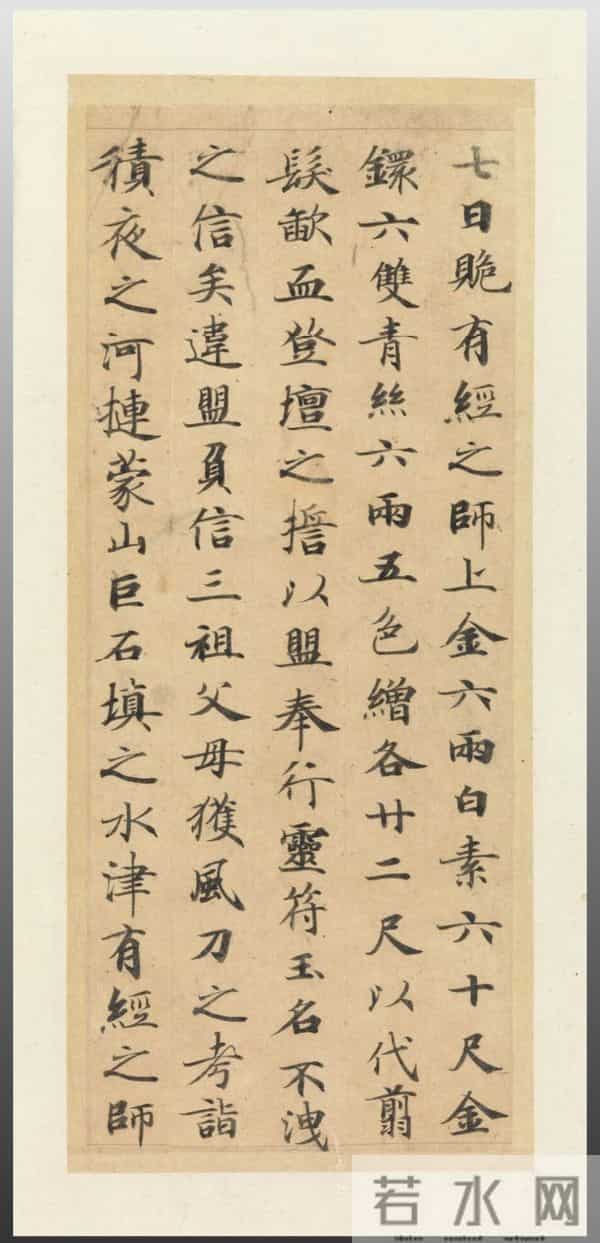 七日貹有經之師上金六兩白素六十尺金
鐶六雙青絲六兩五色繒各廿二尺以代翦
髮歃血登壇之擔以盟奉行靈符玉名不洩
之信矣違盟負信三祖父母獲風刀之考詣
積夜之河摙蒙山巨石填之水津有經之師
若水网